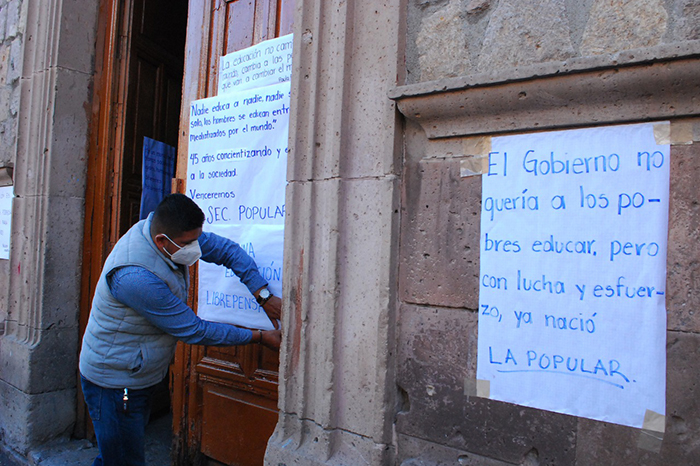 La educación no cam
cambia a las p
que van a cambiar el m
Nadie educa a nadie, nadie s
solo, los hombres se educan entr
mediatizados por el mundo."
45 años concientizando y e
a la sociedad.
Venceremos
SEC. POPULAR
NA
EDUCACIÓN
LIBREPENSA
El Gobierno no
quería a los po-
bres educar, pero
con lucha y esfuer-
zo, ya nació
LA POPULAR.